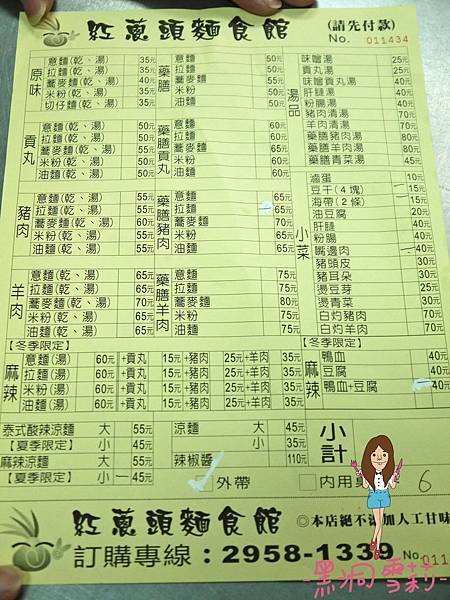 紅蔥頭麵食館 (請先付款)
No. 011434
原味
意麵(乾、湯) 35元
拉麵(乾、湯) 35元
蕎麥麵(乾、湯) 40元
米粉(乾、湯) 35元
切仔麵(乾、湯) 35元
藥膳
意麵 50元
拉麵 50元
蕎麥麵
米粉 50元
油麵 50元
湯品
味噌湯 25元
貢丸湯
味噌貢丸湯 40元
肝腱湯 40元
粉腸湯 40元
豬肉清湯 70元
羊肉清湯 70元
藥膳豬肉湯 80元
藥膳羊肉湯
藥膳青菜湯 45元
貢丸
意麵(乾、湯) 50元
拉麵(乾、湯) 50元
蕎麥麵(乾、湯) 55元
米粉(乾、湯) 50元
油麵(乾、湯) 50元
藥膳貢丸
意麵
拉麵
蕎麥麵
米粉
油麵
豬肉
意麵(乾、湯) 55元
拉麵(乾、湯) 55元
蕎麥麵(乾、湯) 60元
米粉(乾、湯) 55元
油麵(乾、湯) 55元
藥膳豬肉
意麵 65元
拉麵 65元
蕎麥麵 70元
米粉 65元
油麵 65元
小菜
滷蛋 10元
豆干(4塊) 15元
海帶(2條) 15元
油豆腐 20元
肝腱 40元
粉腸 40元
嘴邊肉 40元
豬頭皮 30元
豬耳朵 30元
燙豆芽 25元
燙青菜 30元
白灼豬肉 70元
白灼羊肉 70元
羊肉
意麵(乾、湯) 65元
拉麵(乾、湯) 65元
蕎麥麵(乾、湯) 70元
米粉(乾、湯) 65元
油麵(乾、湯) 65元
藥膳羊肉
意麵 75元
拉麵 75元
蕎麥麵 80元
米粉 75元
油麵 75元
【冬季限定】
麻辣
意麵(湯) 60元 +貢丸 15元 +豬肉 25元 +羊肉 35元
拉麵(湯) 60元 +貢丸 15元 +豬肉 25元 +羊肉 35元
米粉(湯) 60元 +貢丸 15元 +豬肉 25元 +羊肉 35元
油麵(湯) 60元 +貢丸 15元 +豬肉 25元 +羊肉 35元
【冬季限定】
麻辣
鴨血 40元
豆腐 40元
鴨血+豆腐 40元
泰式酸辣涼麵 大 55元
【夏季限定】 小 45元
麻辣涼麵 大 55元
【夏季限定】 小 45元
涼麵 大 45元
小 35元
辣椒醬 110元
小計
外帶
內用桌 6
紅蔥頭麵食館 ◎本店絕不添加人工甘味
訂購專線：2958-1339 No. 011
-黑洞雪莉-